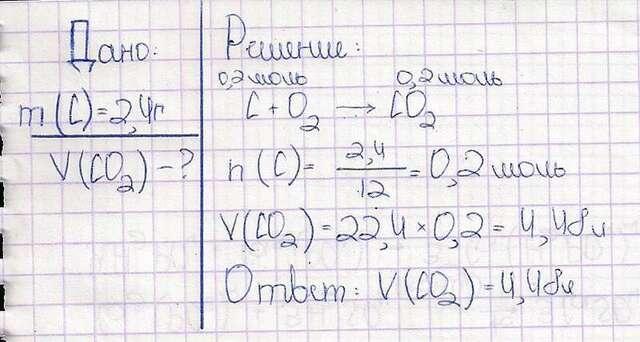 Дано:
m(C)=2,4г
V(CO₂)-?
Решение:
0,2моль 0,2моль
C + O₂ → CO₂
n(C)= 2,4/12 = 0,2 моль
V(CO₂) = 22,4 × 0,2 = 4,48л
Ответ: V(CO₂) = 4,48л